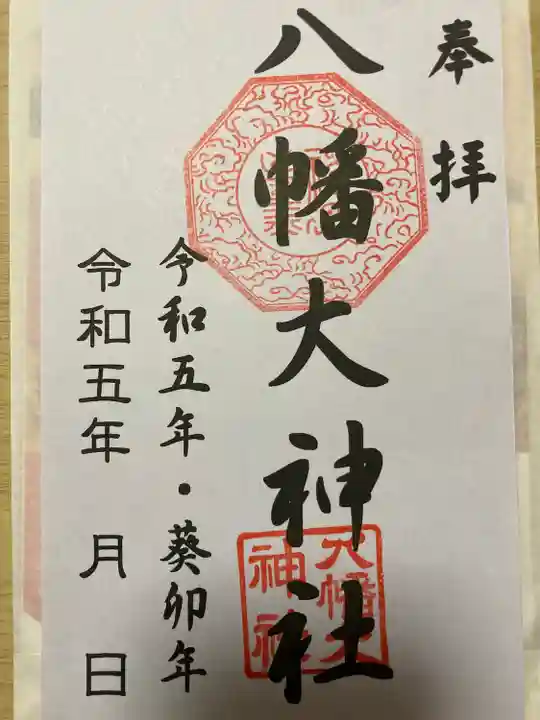 奉拝
八幡大神社
八幡大
神社
令和五年・葵卯年
令和五年 月 日